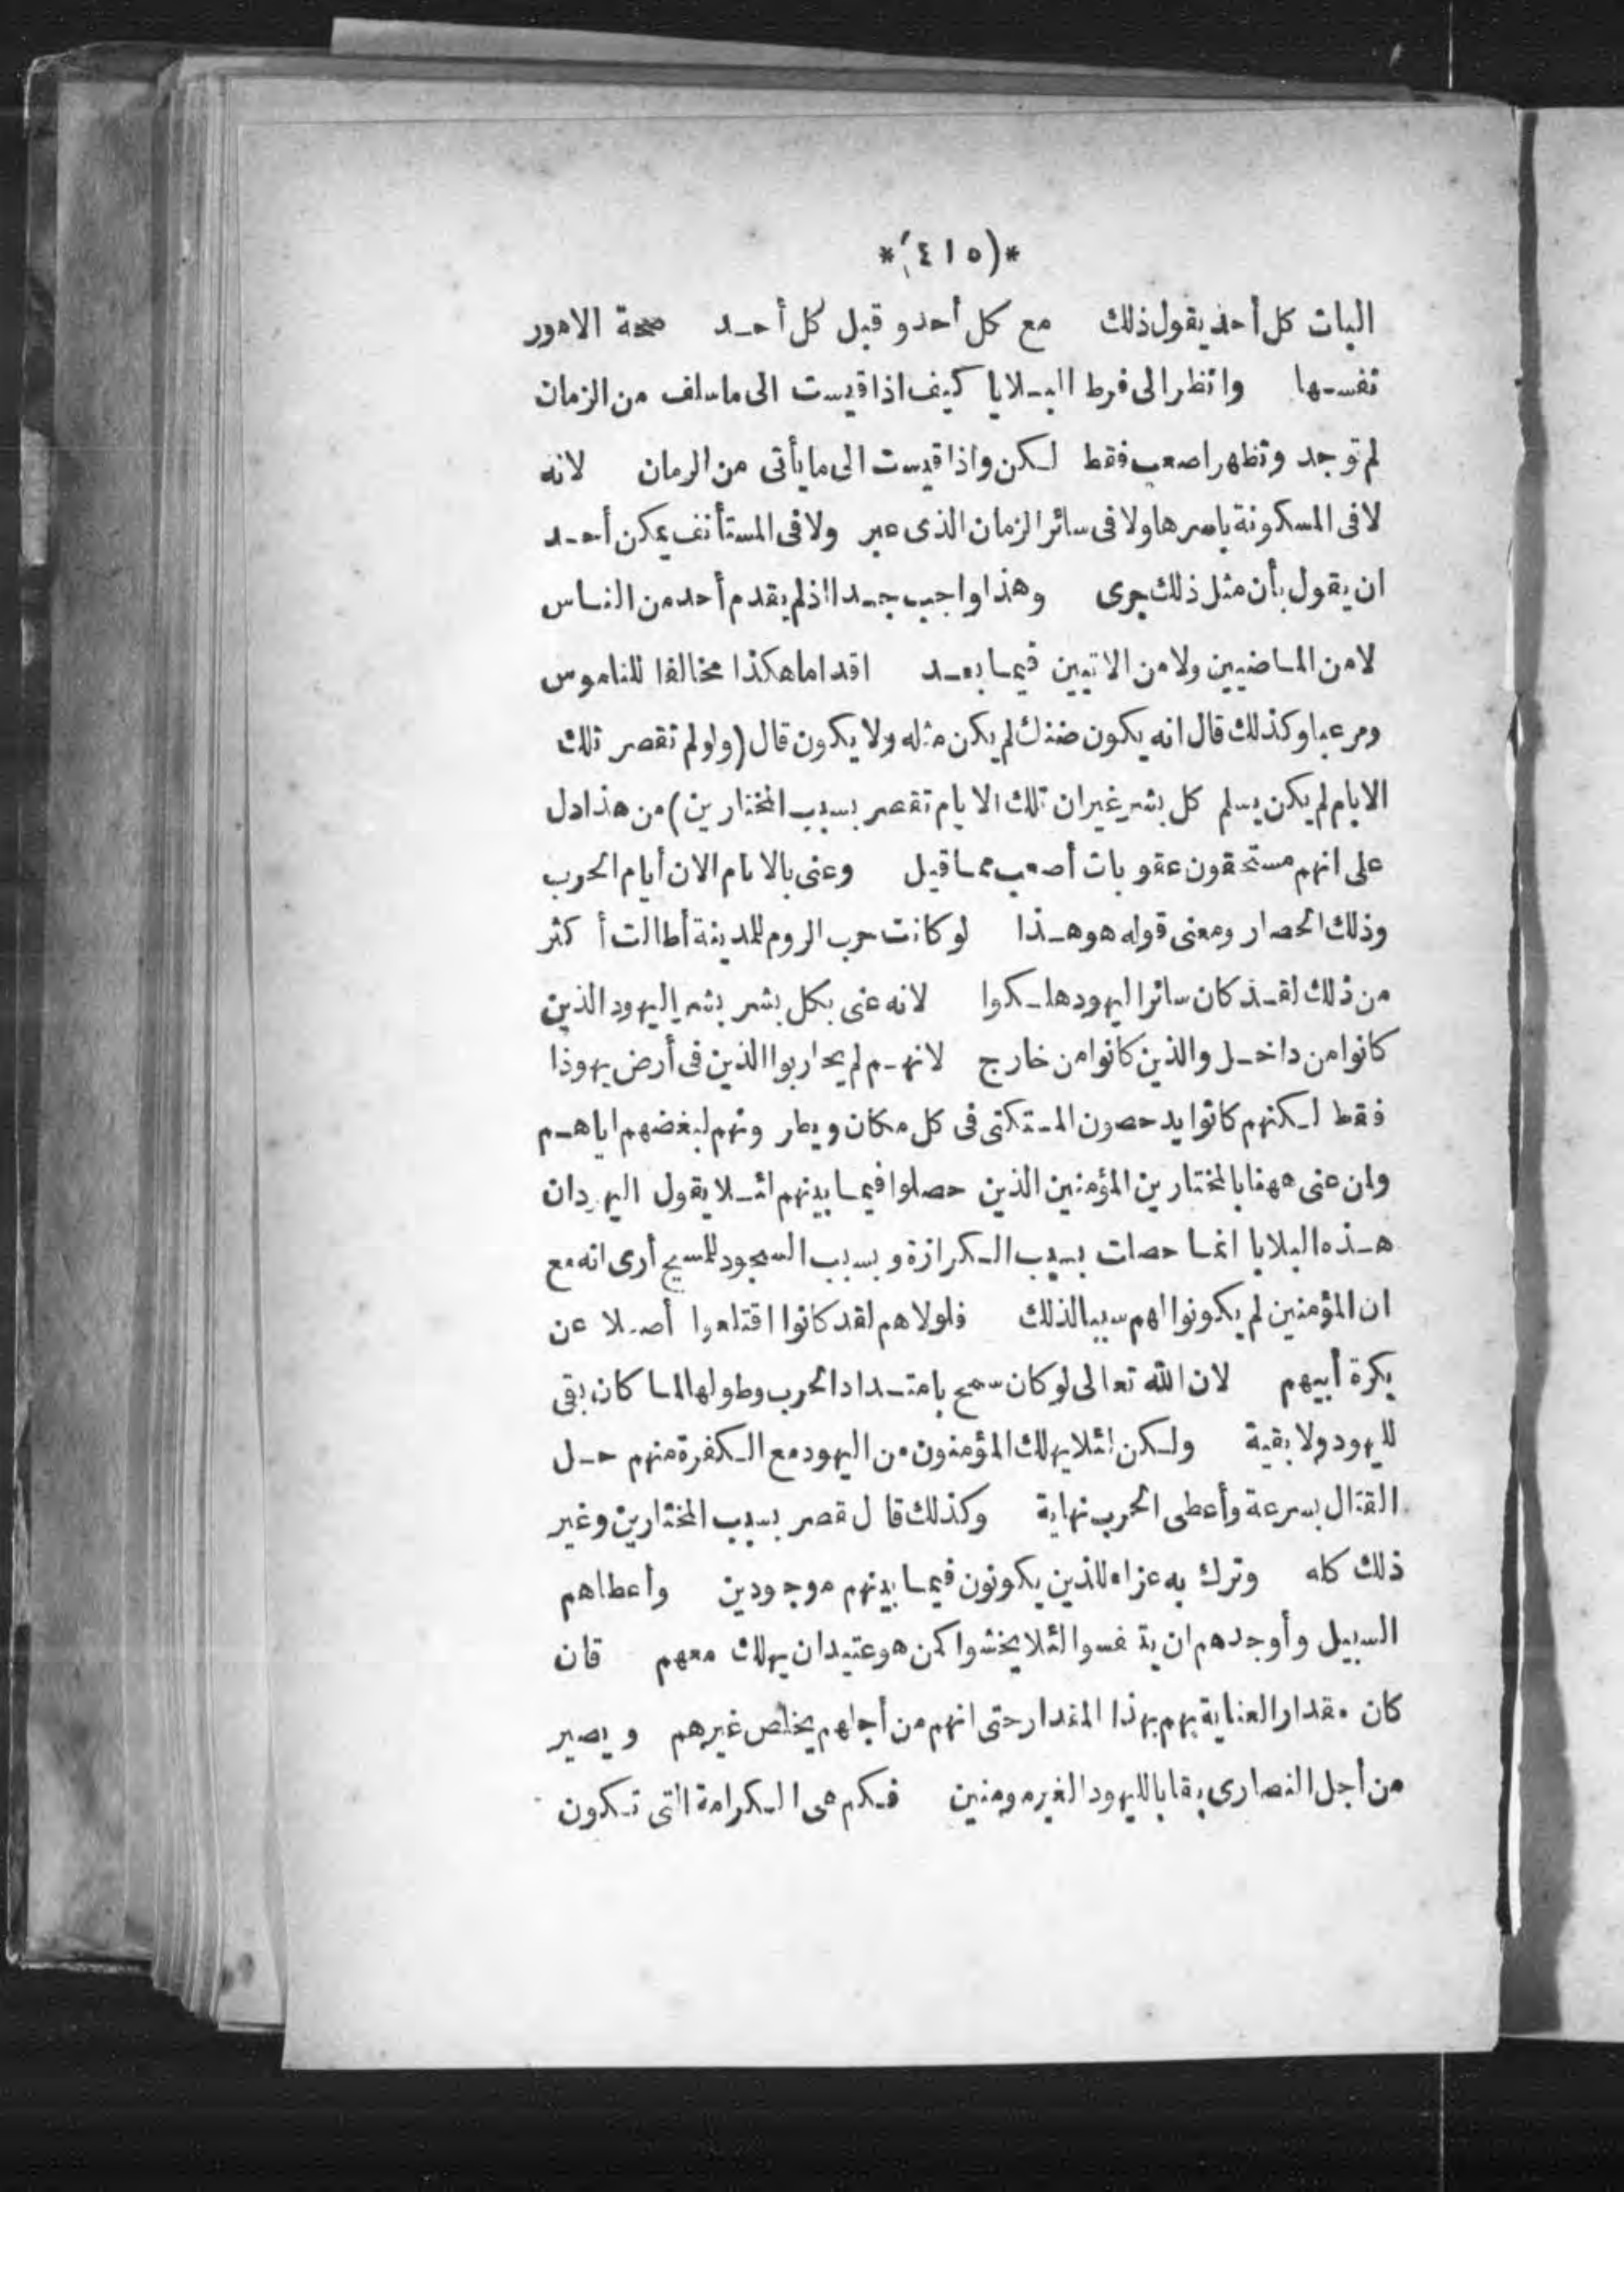 *(٤١٥)*
البات كل أحد يقول ذلك مع كل أحد وقبل كل أحد صحة الامور
نفسها وانظر الى فرط البلايا كيف اذا قيست الى ما سلف من الزمان
لم توجد وتظهر اصعب فقط لكن واذا قيست الى ما يأتى من الزمان لانه
لا فى المسكونة باسرها ولا فى سائر الزمان الذى عبر ولا فى المستأنف يمكن أحد
ان يقول بأن مثل ذلك جرى وهذا واجب جدا اذ لم يقدم أحد من الناس
لا من الماضيين ولا من الاتيين فيما بعد اقداما هكذا مخالفا للناموس
ومرعبا وكذلك قال انه يكون ضنك لم يكن مثله ولا يكون قال (ولو لم تقصر تلك
الايام لم يكن يسلم كل بشر غير ان تلك الايام تقصر بسبب المختارين) من هذا دل
على انهم مستحقون عقوبات أصعب مما قيل وعنى بالايام الان أيام الحرب
وذلك الحصار ومعنى قوله هو هذا لو كانت حرب الروم للمدينة أطالت أكثر
من ذلك لقد كان سائر اليهود هلكوا لانه عنى بكل بشر بشر اليهود الذين
كانوا من داخل والذين كانوا من خارج لانهم لم يحاربوا الذين فى أرض يهوذا
فقط لكنهم كانوا يدحصون المتكتى فى كل مكان ويطرونهم لبغضهم اياهم
وان عنى ههنا بالمختارين المؤمنين الذين حصلوا فيما بينهم لئلا يقول اليهود ان
هذه البلايا انما حصلت بسبب الكرازة وبسبب السجود للمسيح أرى انه مع
ان المؤمنين لم يكونوا لهم سببا لذلك فلولاهم لقد كانوا اقتلعوا أصلا عن
بكرة أبيهم لان الله تعالى لو كان سمح بامتداد الحرب وطولها لما كان بقى
لليهود ولا بقية ولكن لئلا يهلك المؤمنون من اليهود مع الكفرة منهم حل
القتال بسرعة وأعطى الحرب نهاية وكذلك قال تقصر بسبب المختارين وغير
ذلك كله وترك به عزاء للذين يكونون فيما بينهم موجودين وأعطاهم
السبيل وأوجدهم ان يتنفسوا لئلا يخشوا كمن هو عتيد ان يهلك معهم فان
كان مقدار العناية بهم بهذا المقدار حتى انهم من أجلهم يخلص غيرهم ويصير
من أجل النصارى بقايا لليهود الغير مومنين فكم هى الكرامة التى تكون